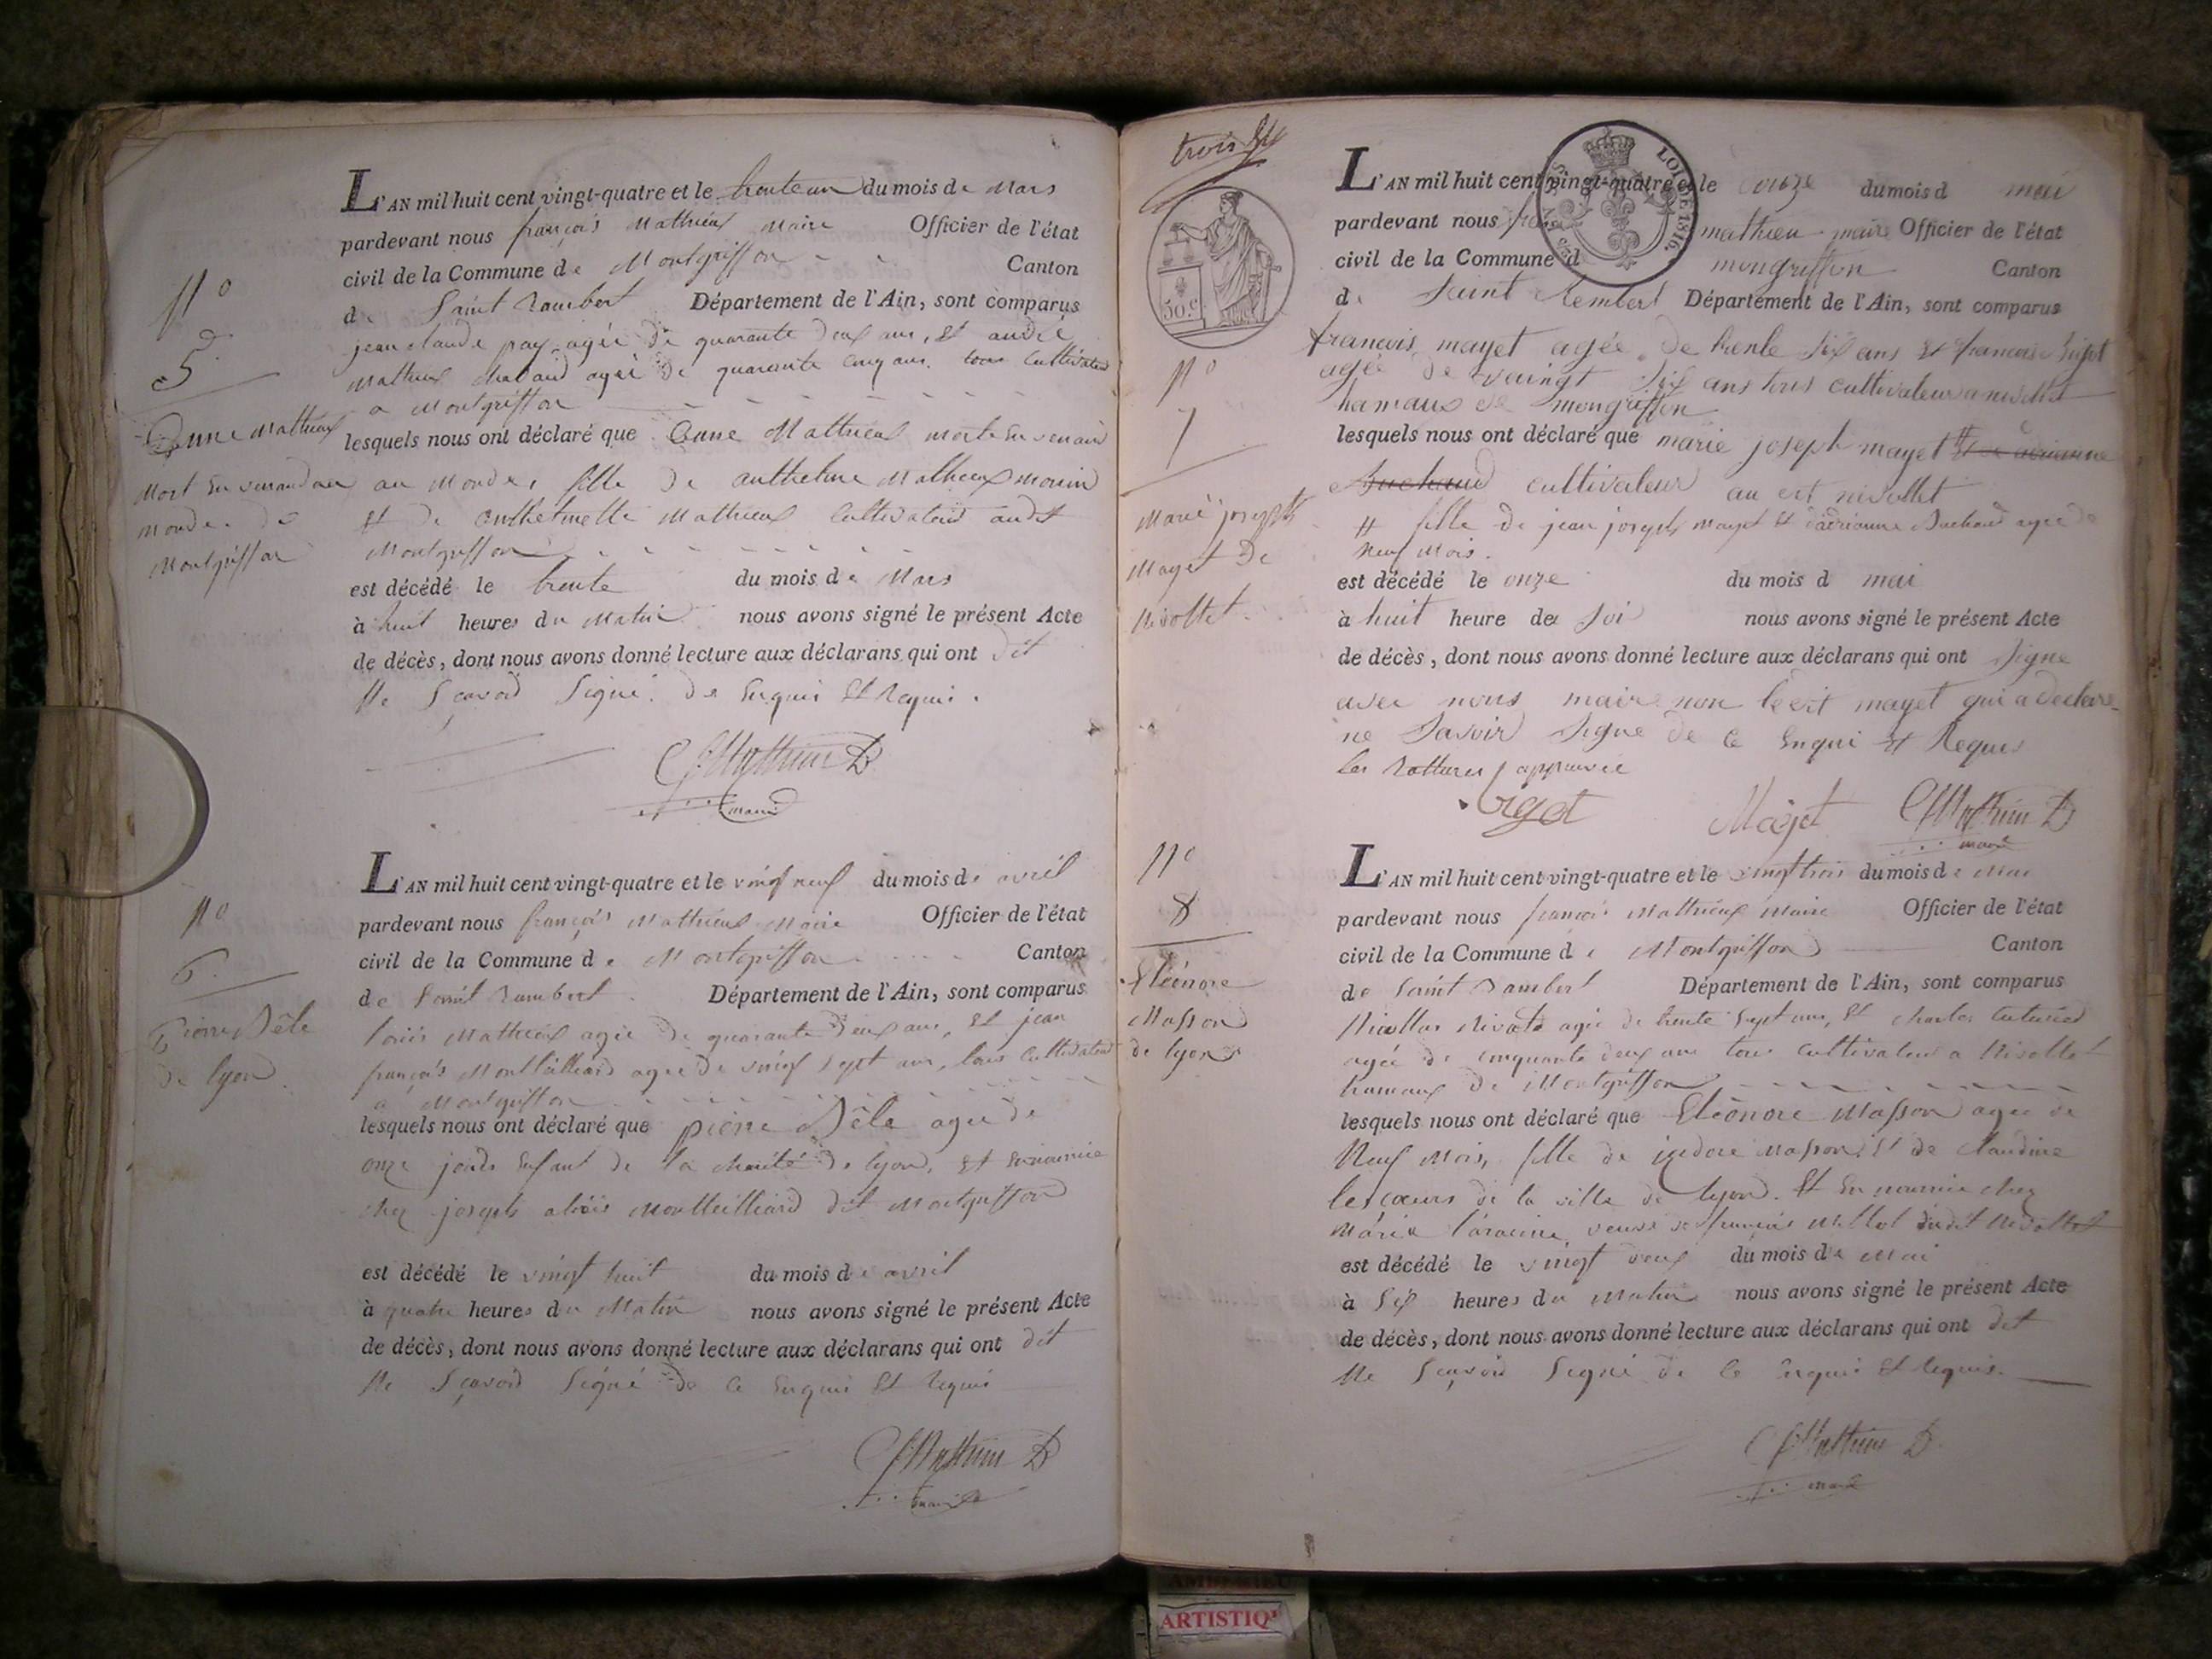 L'AN mil huit cent vingt-quatre et le trente un du mois de Mars
pardevant nous françois Mathieux Maire Officier de l'état
civil de la Commune de Montgriffon Canton
de Saint Rambert Département de l'Ain, sont comparus
jean claude pay agée de quarante deux ans, Et andré
Mathieux chabaud agée de quarante cinq ans. tous cultivateur
a Montgriffon
lesquels nous ont déclaré que Anne Mathieux morte En venant
au Monde, fille de anthelme Mathieux monin
Et de Anthelmette Mathieux cultivateur audit
Montgriffon
est décédé le trente du mois de Mars
à huit heures du Matin nous avons signé le présent Acte
de décès, dont nous avons donné lecture aux déclarans qui ont dit
Ne Sçavoir Signé. de Enquis Et Requis.
f Mathieux
maire
N°
5
Anne Mathieux
Mort En venant au
monde. de
Montgriffon
L'AN mil huit cent vingt-quatre et le vingt neuf du mois de avril
pardevant nous françois Mathieux Maire Officier de l'état
civil de la Commune de Montgriffon Canton
de Saint Rambert Département de l'Ain, sont comparus
louis Mathieux agée de quarante deux ans, Et jean
françois Montillliard agée de vingt sept ans, tous cultivateur
a Montgriffon
lesquels nous ont déclaré que pierre Dêle agée de
onze jours Enfant de la charité de lyon, Et En nourrice
chez joseph Montteilliard dit Montgriffon
est décédé le vingt huit du mois de avril
à quatre heures du Matin nous avons signé le présent Acte
de décès, dont nous avons donné lecture aux déclarans qui ont dit
Ne Sçavoir Signé de ce Enquis Et Requis
f Mathieux
maire
N°
6
Pierre Dêle
de lyon
trois
50 c.
LOI DE 1816.
L'AN mil huit cent vingt-quatre et le onze du mois d mai
pardevant nous mathieu maire Officier de l'état
civil de la Commune d mongriffon Canton
de Saint Rembert Département de l'Ain, sont comparus
francois mayet agée de trente six ans Et francois
agée de vaingt six ans tous cultivateur a nivollet
hamaux de mongriffon
lesquels nous ont déclaré que marie joseph mayet #
cultivateur au dit nivollet
# fille de jean joseph mayet Et d'adrianne Buchaud agée de
neuf Mois.
est décédé le onze du mois d mai
à huit heure de Soi nous avons signé le présent Acte
de décès, dont nous avons donné lecture aux déclarans qui ont signe
avec nous maire non ledit mayet qui a declare
ne Savoir Signe de ce Enqui Et Requis
les Rattures approuvée
Mayet f Mathieux
maire
N°
7
Marie joseph
Mayet de
Nivollet
L'AN mil huit cent vingt-quatre et le vingt trois du mois de Mai
pardevant nous françois Mathieux Maire Officier de l'état
civil de la Commune de Montgriffon Canton
de Saint Rambert Département de l'Ain, sont comparus
Nicollas agée de trente Sept ans, Et charles
agée de cinquante deux ans tous cultivateur a Nivollet
hamaux de Montgriffon
lesquels nous ont déclaré que Eléonore Masson agée de
Neuf Mois, fille de izidore Masson, Et de Claudine
lescœurs de la ville de lyon. Et En nourrice chez
Maria veuve de françois Millet dudit Nivollet
est décédé le vingt deux du mois de Mai
à Six heures du Matin nous avons signé le présent Acte
de décès, dont nous avons donné lecture aux déclarans qui ont dit
Ne Sçavoir Signé de ce Enquis Et Requis.
f Mathieux
maire
N°
8
Eléonore
Masson
de lyon
ARTISTIQ